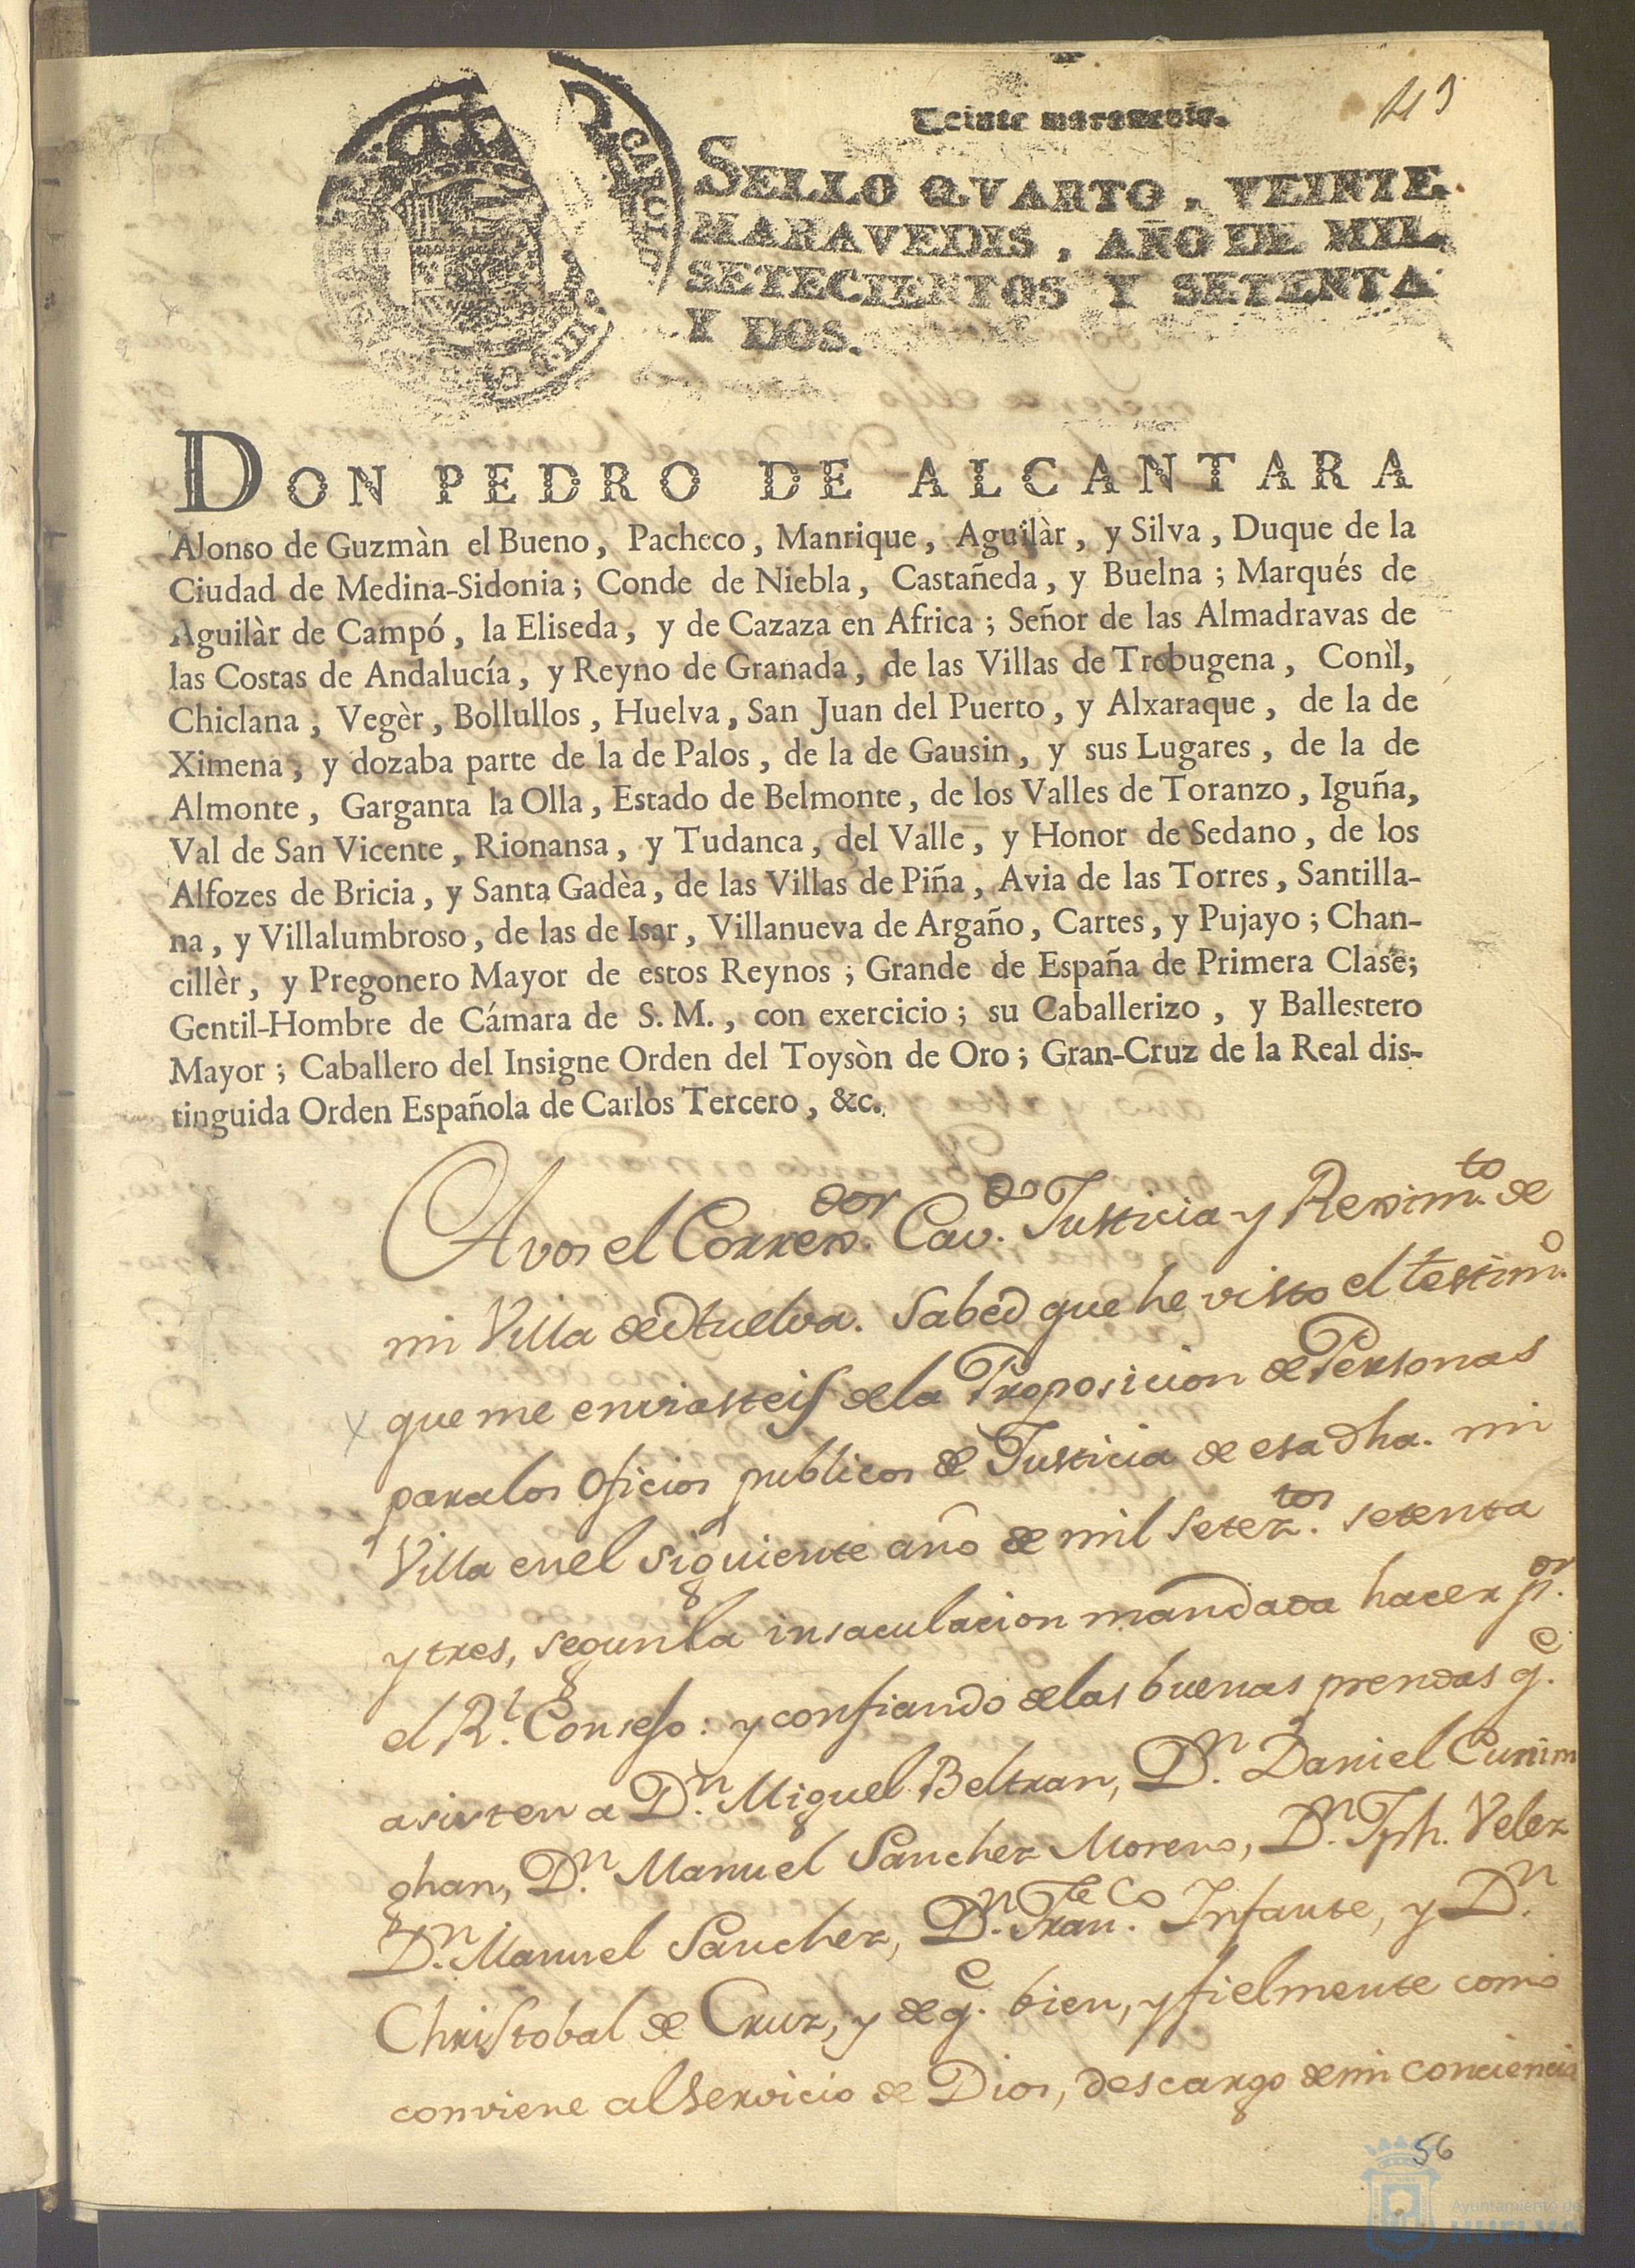 113
Veinte maravedis.
SELLO QVARTO, VEINTE
MARAVEDIS, AÑO DE MIL
SETECIENTOS Y SETENTA
Y DOS.
DON PEDRO DE ALCANTARA
Alonso de Guzmàn el Bueno, Pacheco, Manrique, Aguilàr, y Silva, Duque de la
Ciudad de Medina-Sidonia; Conde de Niebla, Castañeda, y Buelna; Marqués de
Aguilàr de Campó, la Eliseda, y de Cazaza en Africa; Señor de las Almadravas de
las Costas de Andalucía, y Reyno de Granada, de las Villas de Trebugena, Conìl,
Chiclana, Vegèr, Bollullos, Huelva, San Juan del Puerto, y Alxaraque, de la de
Ximena, y dozaba parte de la de Palos, de la de Gausin, y sus Lugares, de la de
Almonte, Garganta la Olla, Estado de Belmonte, de los Valles de Toranzo, Iguña,
Val de San Vicente, Rionansa, y Tudanca, del Valle, y Honor de Sedano, de los
Alfozes de Bricia, y Santa Gadèa, de las Villas de Piña, Avia de las Torres, Santilla-
na, y Villalumbroso, de las de Isar, Villanueva de Argaño, Cartes, y Pujayo; Chan-
cillèr, y Pregonero Mayor de estos Reynos; Grande de España de Primera Clase;
Gentil-Hombre de Cámara de S. M., con exercicio; su Caballerizo, y Ballestero
Mayor; Caballero del Insigne Orden del Toysòn de Oro; Gran-Cruz de la Real dis-
tinguida Orden Española de Carlos Tercero, &c.
A vos el Correg.dor Cav.do Justicia y Regim.to de
mi Villa de Huelva. Sabed que he visto el testim.o
que me enviasteis de la Proposicion de Personas
para los Oficios publicos de Justicia de esa dha. mi
Villa en el siguiente año de mil setez.tos setenta
y tres, segun la insaculacion mandada hacer p.or
el R.l Consejo: y confiando de las buenas prendas q.e
asisten a D.n Miguel Beltran, D.n Daniel Cunin
ghan, D.n Manuel Sanchez Moreno, D.n Jph. Velez
D.n Manuel Sanchez, D.n Fran.co Infante, y D.n
Christobal de Cruz, y de q.e bien, y fielmente como
conviene al Servicio de Dios, descargo de mi conciencia
56
Ayuntamiento de
HUELVA